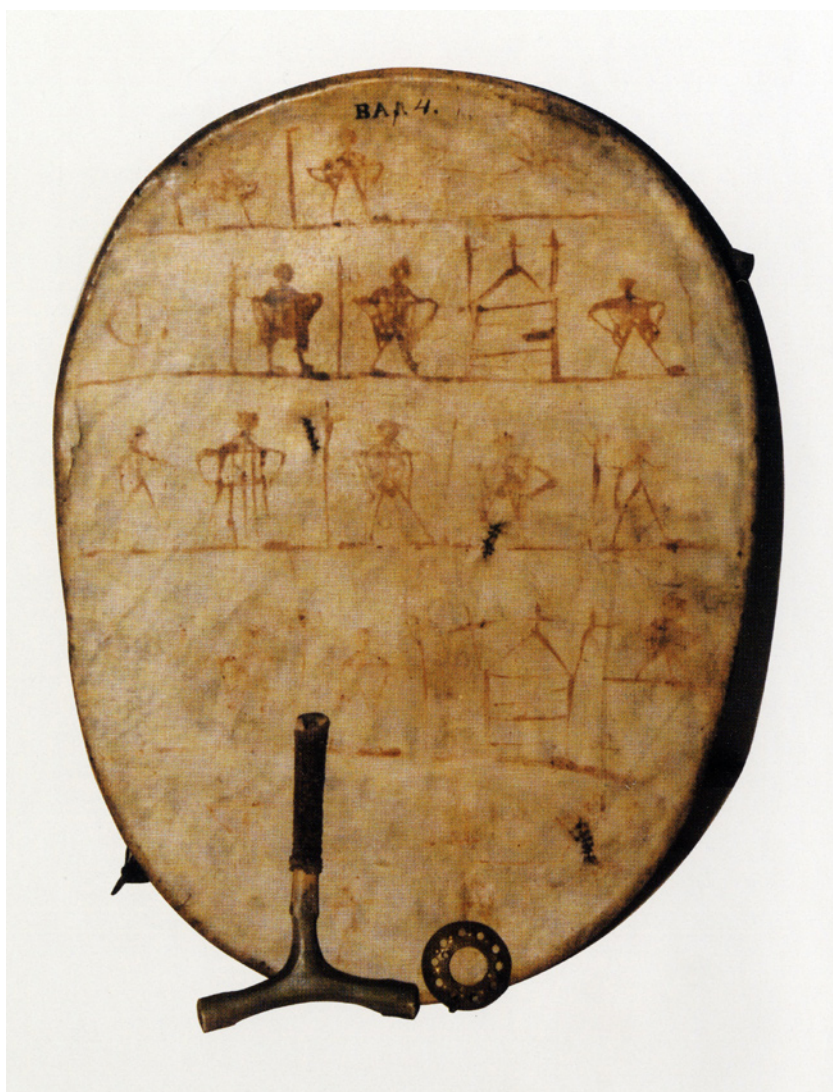 BAA 4.